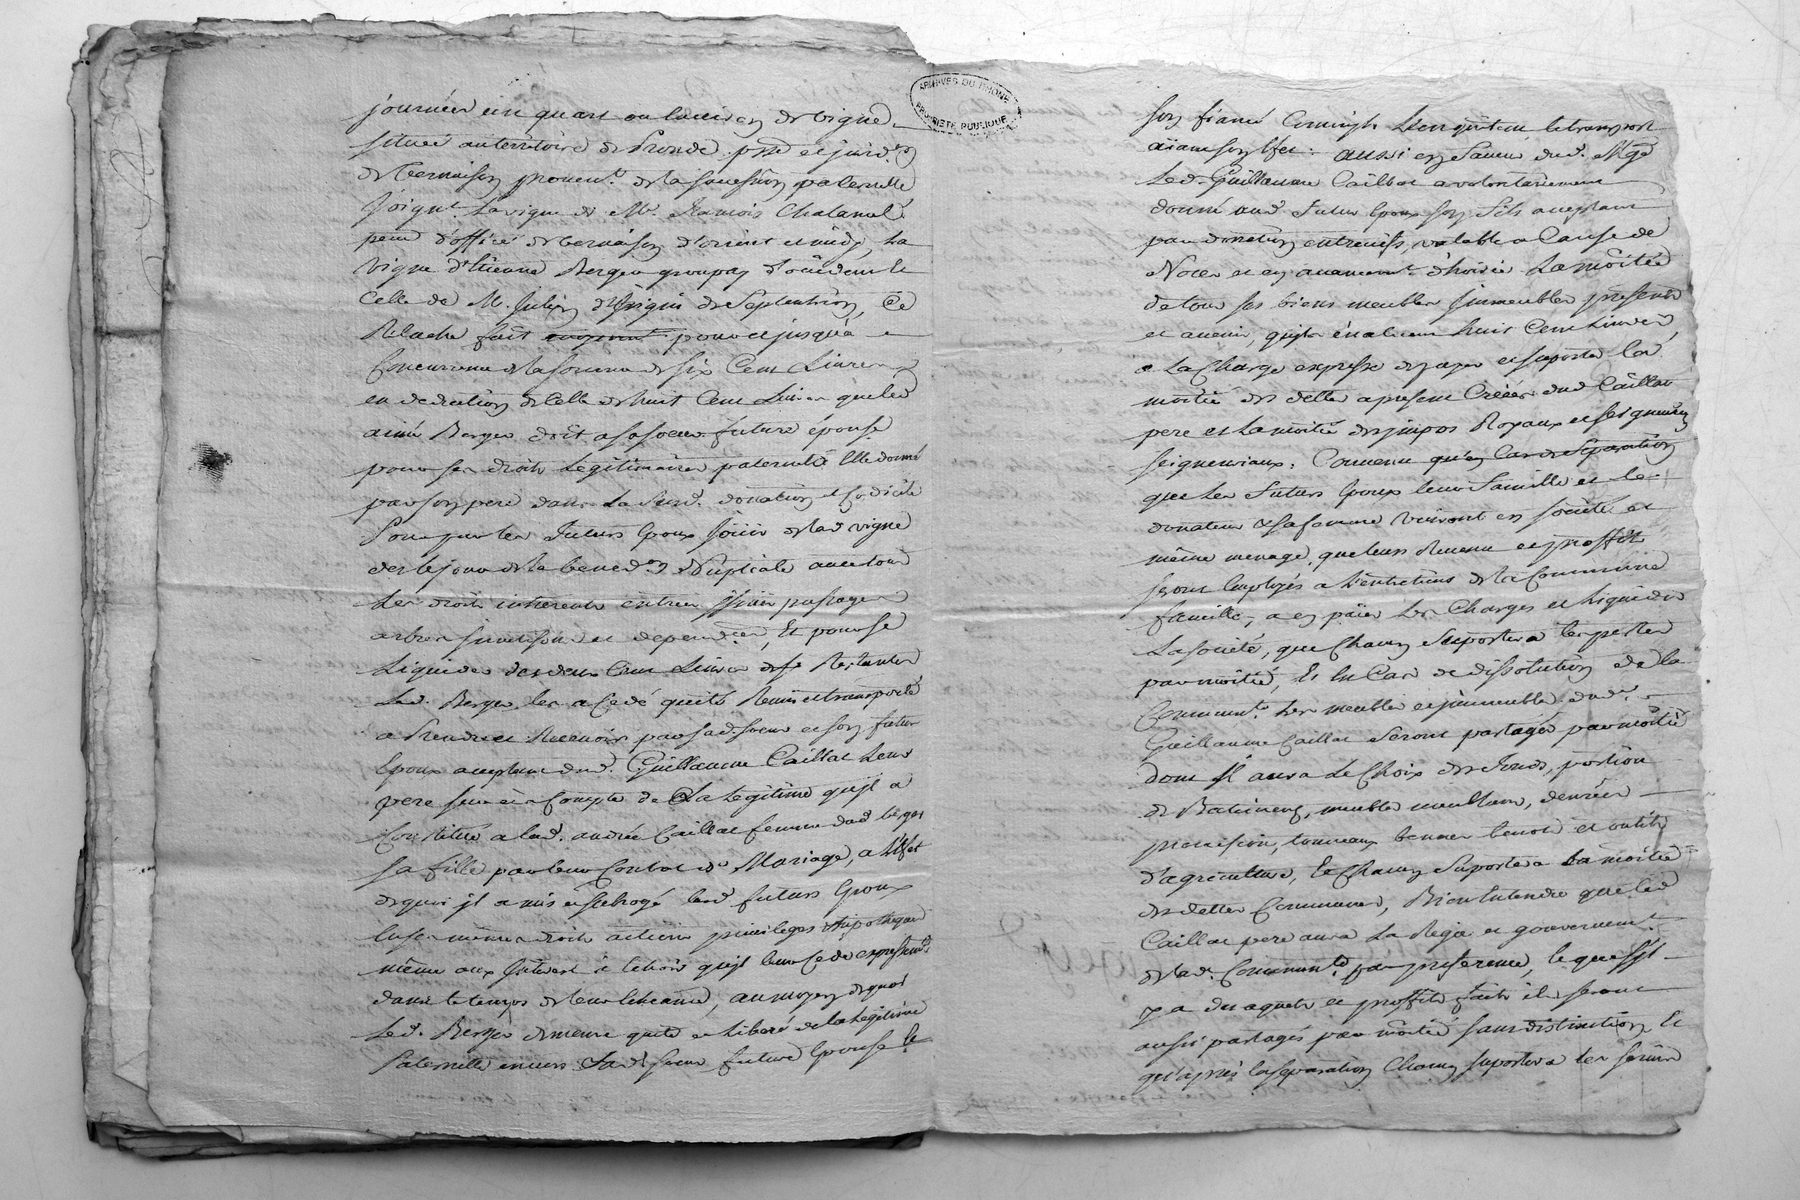 journées un quart ou environ de vigne
située au territoire de Pronde psse et jurid.on
de Vernaison provent. de la succession paternelle
joigt. la vigne de Mr. francois Chatanal
d'office de Vernaison d'orient et midy, la
vigne d'Etienne Berger d'occident et
celle de M. Julien d'Irigni de Septentrion, Ce
Relache fait pour et jusqu'a
Concurrence de la somme de six Cent Livres
en deduction de celle de huit Cent Livres que led
aimé Berger doit a sa soeur future epouse
pour ses droits Legitimaires paternels Elle donné
par son pere dans la susd. donation et codicile
Pour par les futurs Epoux jouir de la d vigne
des le jour de la bened.on Nuptiale avec tous
les droits inherents entrées issuës passages
arbres et dependces, Et pour se
Liquider des deux Cent Livres Restantes
Led. Berger les a Cedé quitté Remis et transporté
a Prendre et Recevoir par sa d. soeur et son futur
Epoux acceptant dud. Guillaume Caillat Leur
pere sur et a Compte de La Legitime qu'jl a
Constitué a lad. andrée Caillat femme dud berger
sa fille par leur Contrat de Mariage, a l'Effet
de quoi jl a mis et subrogé lesd futurs Epoux
en ses mêmes droits actions privileges hipotheques
même aux Interest a echoir qu'jl leur Cede expressemt.
dans le temps de leur echeance, au moyen de quoi
Led. Berger demeure quitte et Liberé de la Legitime
Paternelle envers sa d. soeur future Epouse le
ARCHIVES DU RHONE
PROPRIETE PUBLIQUE
son fiancé Comings L'en quittant le transport
aiant son Effet : aussi en faveur dud. Mge
Led. Guillaume Caillat a volontairement
donné aud futur Epoux son fils acceptant
par donation entrevifs, valable a Cause de
Noces et en avancement d'hoirie La moitié
de tous ses biens meubles jmmeubles présents
et avenir, qu'jls évaluent huit Cent Livres,
a La Charge expresse de payer et suporter la
moitié des dettes a présent Créées dud Caillat
pere et la moitié des jmpos Royaux et
seigneuriaux. Convenu qu'en Cas de Séparation
que Les futurs Epoux leur famille et le
donateur et sa femme vivront en société et
même menage, que leurs Revenu et proffit
seront Employés a L'entretiens de la Commune
famille, a en païer Les Charges et Liquider
La société, que Chacun Suportera les pertes
par moitié, Et En Cas de dissolution de la
Communt. Les meubles et jmmeubles dud.
Guillaume Caillat seront partagés par moitié
dont jl aura Le Choix des fonds, portion
de Batiment, meubles meublans, denrées
provision, tonneaux bennes benots et outils
d'agriculture, Et Chacun Suportera La moitié
des dettes Communes, Bien Entendu que led
Caillat pere aura La Regie et gouvernemt.
de lad. Communté. par preference, Et que s'jl
y a des aquets et proffits faits ils seront
aussi partagés par moitié sans distinction Et
qu'après la séparation Chacun suportera les servis